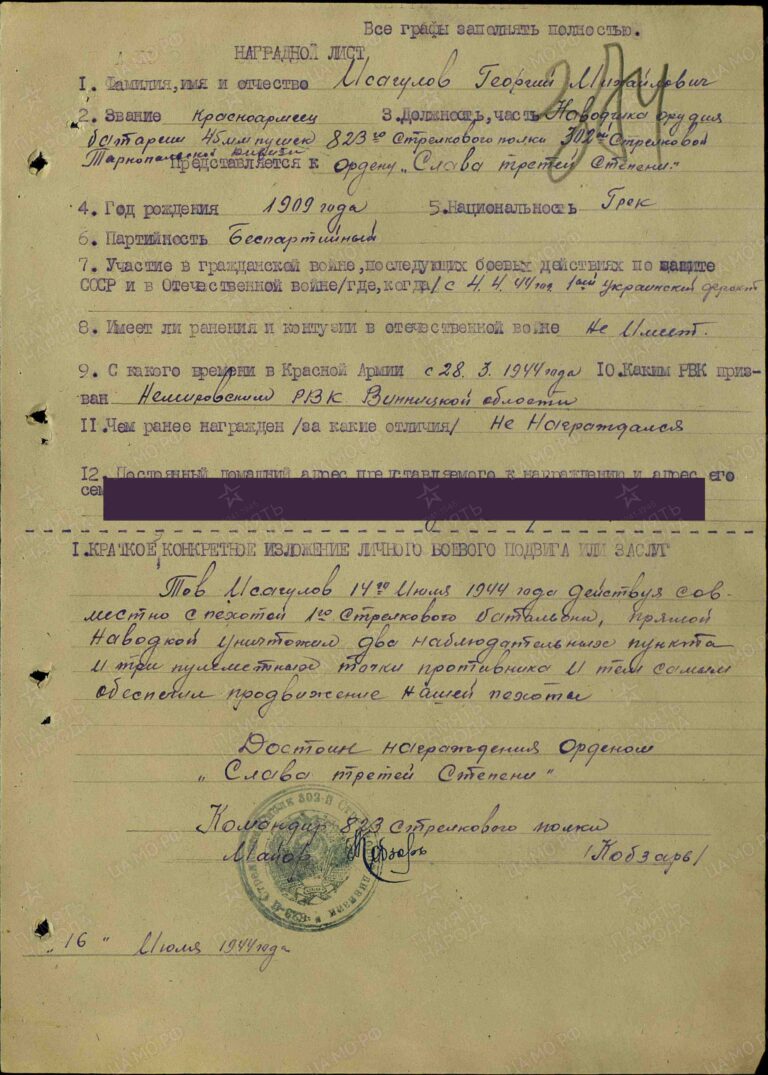 Все графы заполнять полностью.
НАГРАДНОЙ ЛИСТ
1. Фамилия,имя и отчество Исагулов Георгий Михайлович
2. Звание Красноармеец 3.Должность,часть Наводчик орудия
батареи 45 мм пушек 823го Стрелкового полка 302ой Стрелковой
Тарнопольской дивизии
Представляется к ордену „Слава третей Степени."
4. Год рождения 1909 года 5.Национальность Грек
6. Партийность Беспартийный
7. Участие в гражданской войне,последующих боевых действиях по защите
СССР и в Отечественной войне/где,когда/ с 4.4.44 год. 1ый Украинский фронт
8. Имеет ли ранения и контузии в отечественной войне Не Имеет.
9. С какого времени в Красной Армии с 28. 3. 1944 года 10.Каким РВК приз-
ван Немировским РВК Винницкой области
11.Чем ранее награжден /за какие отличия/ Не Награждался
12. Постоянный домашний адрес представляемого к награждению и адрес его
сем
1.КРАТКОЕ КОНКРЕТНОЕ ИЗЛОЖЕНИЕ ЛИЧНОГО БОЕВОГО ПОДВИГА ИЛИ ЗАСЛУГ
Тов Исагулов 14го Июля 1944 года действуя сов-
местно с пехотой 1го Стрелкового батальона, прямой
Наводкой уничтожил два наблюдательных пункта
и три пулеметные точки противника и тем самым
обеспечил продвижение нашей пехоты
Достоин награждения Орденом
„Слава третей Степени"
Командир 823 стрелкового полка
Майор Кобзарь /Кобзарь/
„16" Июля 1944 года